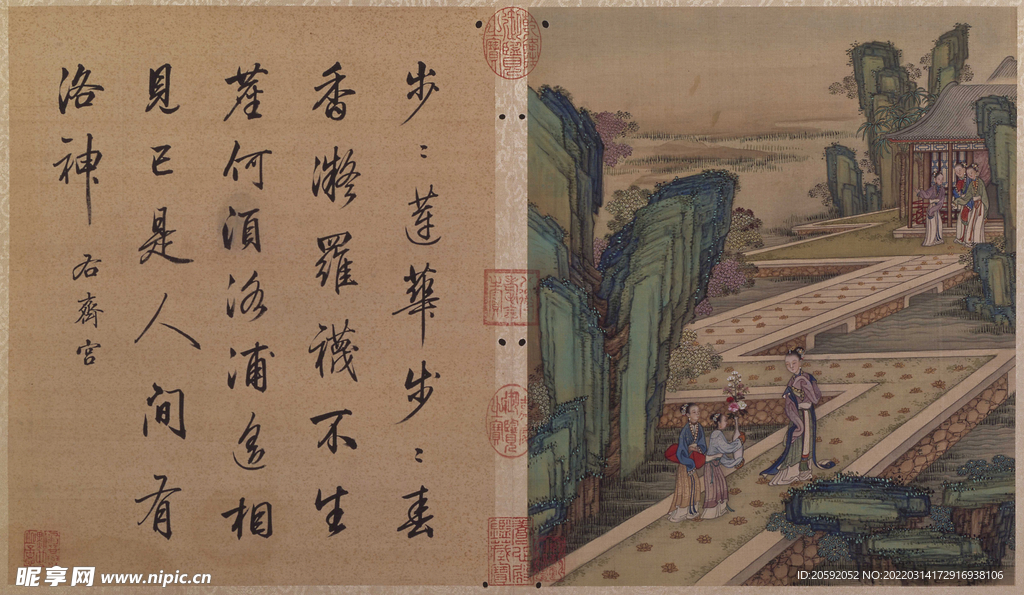 步〻蓮華步〻春
香凝羅襪不生
塵何須洛浦遙相
見已是人間有
洛神
右齊宮
昵享网 www.nipic.cn
ID:20592052 NO:20220314172916938106